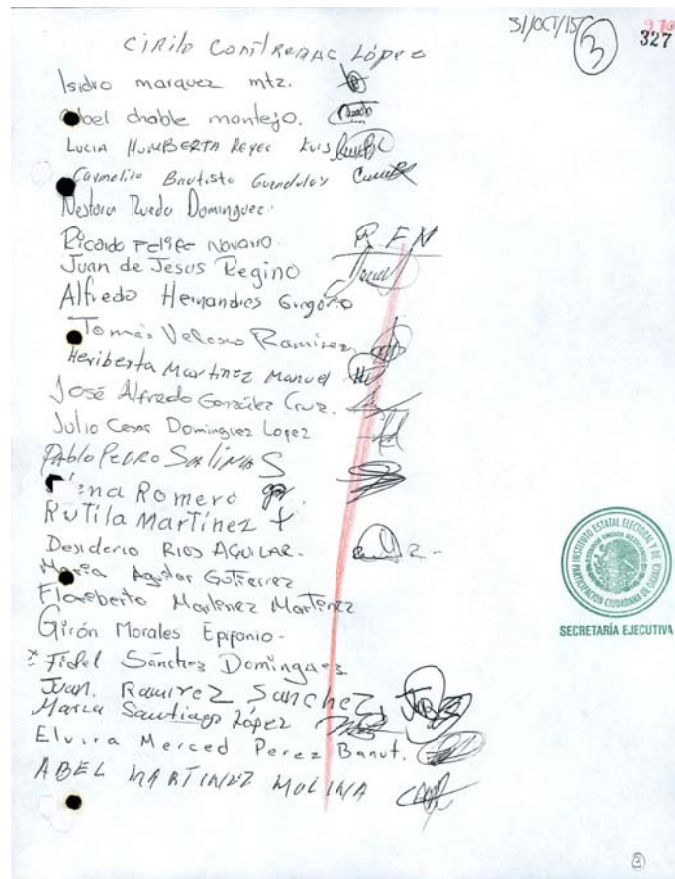 31/OCT/15
3
970
327
CIRILO CONTRERAS López
Isidro marquez mtz.
Abel chable montejo.
Lucia HUMBERTA Reyes Luis
Carmelita Bautista
Nestora Rueda Dominguez.
Ricardo Felipe Navarro. R.F.N
Juan de Jesus Regino
Alfredo Hernandes Gregorio
Tomás Velasco Ramirez
Heriberta Martinez Manuel
José Alfredo González Cruz.
Julio Cesar Dominguez Lopez
PABlo PEDRO SALINAS
Elena Romero
RUTILA MARTÍNEZ +
Desiderio RIOS AGUILAR.
María Aguilar Gutierrez
Floriberto Martinez Martinez
Girón Morales Epifanio-
Fidel Sánchez Dominguez
Juan. Ramirez Sanchez,
Maria Santiago López
Elvira Merced Perez Banut.
ABEL MARTINEZ MOLINA
INSTITUTO ESTATAL ELECTORAL Y DE
PARTICIPACIÓN CIUDADANA DE OAXACA
ESTADOS UNIDOS MEXICANOS
SECRETARÍA EJECUTIVA